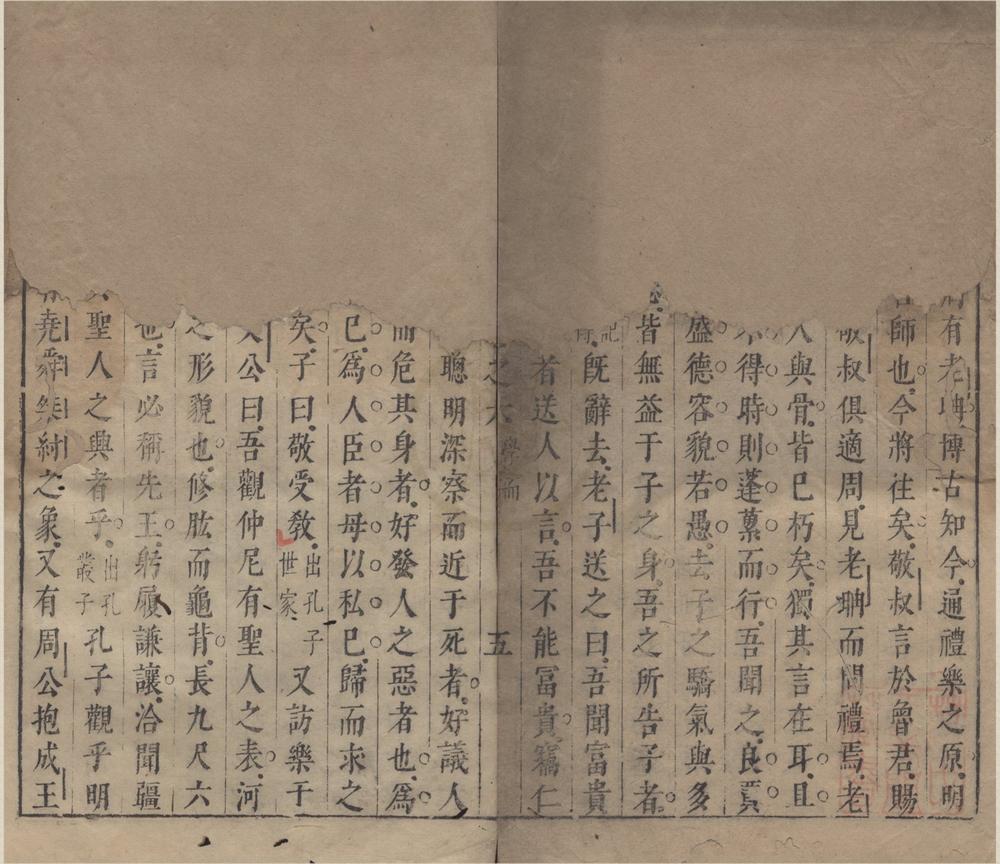 有老聃博古知今通禮樂之原明
師也今將往矣敬叔言於魯君賜
敬叔俱適周見老聃而問禮焉老
人與骨皆已朽矣獨其言在耳且
不得時則蓬藁而行吾聞之良賈
盛德容貌若愚去子之驕氣與多
皆無益于子之身吾之所告子者
既辭去老子送之曰吾聞富貴
者送人以言吾不能富貴竊仁
之六 五
聰明深察而近于死者好議人
而危其身者好發人之惡者也爲
已爲人臣者毋以私已歸而求之
矣子曰敬受敎出孔子世家又訪樂于
公曰吾觀仲尼有聖人之表河
之形貌也修肱而龜背長九尺六
也言必稱先王躬履謙讓洽聞疆
聖人之興者乎出孔叢子孔子觀乎明
堯舜桀紂之象又有周公抱成王